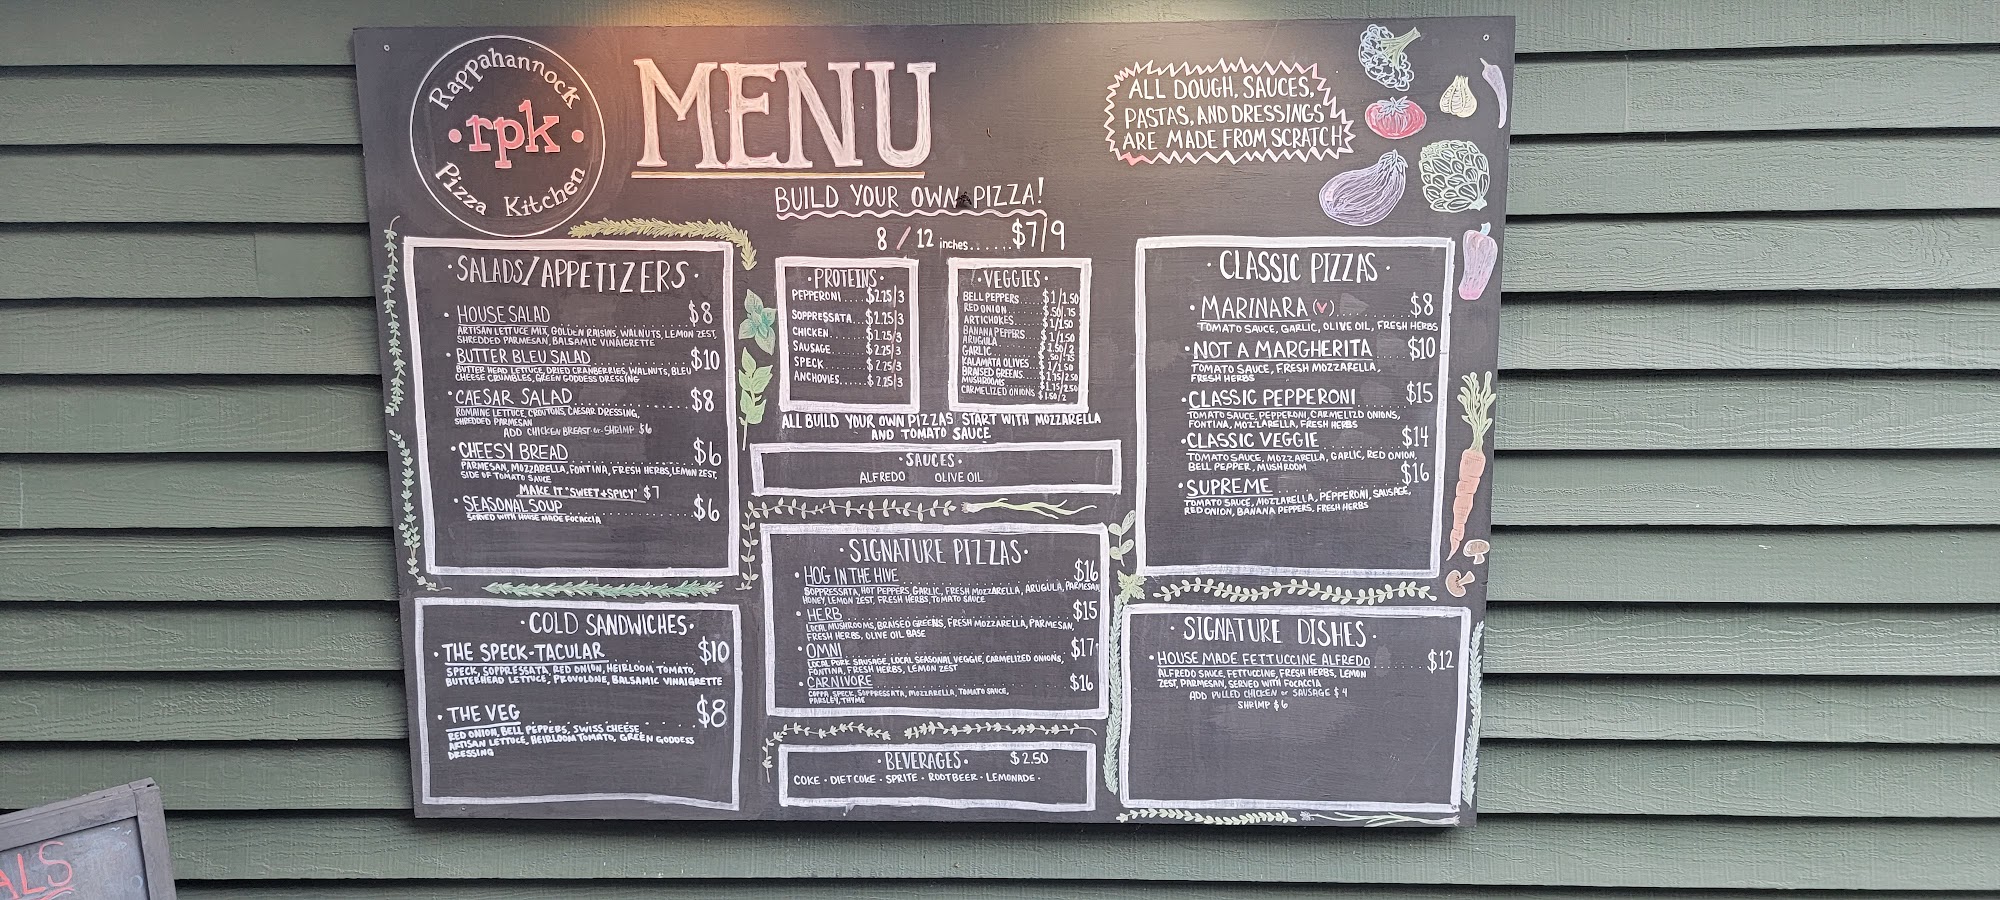 Rappahannock
rpk
Pizza Kitchen
MENU
ALL DOUGH, SAUCES,
PASTAS, AND DRESSINGS
ARE MADE FROM SCRATCH
BUILD YOUR OWN PIZZA!
8 / 12 inches...... $7/9
SALADS/APPETIZERS
HOUSE SALAD $8
ARTISAN LETTUCE MIX, GOLDEN RAISINS, WALNUTS, LEMON ZEST,
SHREDDED PARMESAN, BALSAMIC VINAIGRETTE
BUTTER BLEU SALAD $10
BUTTER HEAD LETTUCE, DRIED CRANBERRIES, WALNUTS, BLEU
CHEESE CRUMBLES, GREEN GODDESS DRESSING
CAESAR SALAD $8
ROMAINE LETTUCE, CROUTONS, CAESAR DRESSING,
SHREDDED PARMESAN
ADD CHICKEN BREAST or SHRIMP $6
CHEESY BREAD $6
PARMESAN, MOZZARELLA, FONTINA, FRESH HERBS, LEMON ZEST,
SIDE OF TOMATO SAUCE
MAKE IT "SWEET+SPICY" $7
SEASONAL SOUP $6
SERVED WITH HOUSE MADE FOCACCIA
COLD SANDWICHES
THE SPECK-TACULAR $10
SPECK, SOPPRESSATA, RED ONION, HEIRLOOM TOMATO,
BUTTERHEAD LETTUCE, PROVOLONE, BALSAMIC VINAIGRETTE
THE VEG $8
RED ONION, BELL PEPPERS, SWISS CHEESE,
ARTISAN LETTUCE, HEIRLOOM TOMATO, GREEN GODDESS
DRESSING
PROTEINS
PEPPERONI.... $2.25/3
SOPPRESSATA... $2.25/3
CHICKEN $2.25/3
SAUSAGE $2.25/3
SPECK $2.25/3
ANCHOVIES...... $2.25/3
VEGGIES
BELL PEPPERS $1/1.50
RED ONION .50/.75
ARTICHOKES $1/1.50
BANANA PEPPERS $1/1.50
ARUGULA $1.50/2
GARLIC .50/.75
KALAMATA OLIVES $1/1.50
BRAISED GREENS $1.75/2.50
MUSHROOMS $1.75/2.50
CARMELIZED ONIONS $1.50/2
ALL BUILD YOUR OWN PIZZAS START WITH MOZZARELLA
AND TOMATO SAUCE
SAUCES
ALFREDO OLIVE OIL
SIGNATURE PIZZAS
HOG IN THE HIVE $16
SOPPRESSATA, HOT PEPPERS, GARLIC, FRESH MOZZARELLA, ARUGULA, PARMESAN
HONEY, LEMON ZEST, FRESH HERBS, TOMATO SAUCE
HERB $15
LOCAL MUSHROOMS, BRAISED GREENS, FRESH MOZZARELLA, PARMESAN,
FRESH HERBS, OLIVE OIL BASE
OMNI $17
LOCAL PORK SAUSAGE, LOCAL SEASONAL VEGGIE, CARMELIZED ONIONS,
FONTINA, FRESH HERBS, LEMON ZEST
CARNIVORE $16
COPPA, SPECK, SOPPRESSATA, MOZZARELLA, TOMATO SAUCE,
PARSLEY, THYME
BEVERAGES $2.50
COKE · DIET COKE · SPRITE · ROOTBEER · LEMONADE ·
CLASSIC PIZZAS
MARINARA (V) $8
TOMATO SAUCE, GARLIC, OLIVE OIL, FRESH HERBS
NOT A MARGHERITA $10
TOMATO SAUCE, FRESH MOZZARELLA,
FRESH HERBS
CLASSIC PEPPERONI $15
TOMATO SAUCE, PEPPERONI, CARMELIZD ONIONS,
FONTINA, MOZZARELLA, FRESH HERBS
CLASSIC VEGGIE $14
TOMATO SAUCE, MOZZARELLA, GARLIC, RED ONION,
BELL PEPPER, MUSHROOM
SUPREME $16
TOMATO SAUCE, MOZZARELLA, PEPPERONI, SAUSAGE,
RED ONION, BANANA PEPPERS, FRESH HERBS
SIGNATURE DISHES
HOUSE MADE FETTUCCINE ALFREDO $12
ALFREDO SAUCE, FETTUCCINE, FRESH HERBS, LEMON
ZEST, PARMESAN, SERVED WITH FOCACCIA
ADD PULLED CHICKEN or SAUSAGE $4
SHRIMP $6
ALS